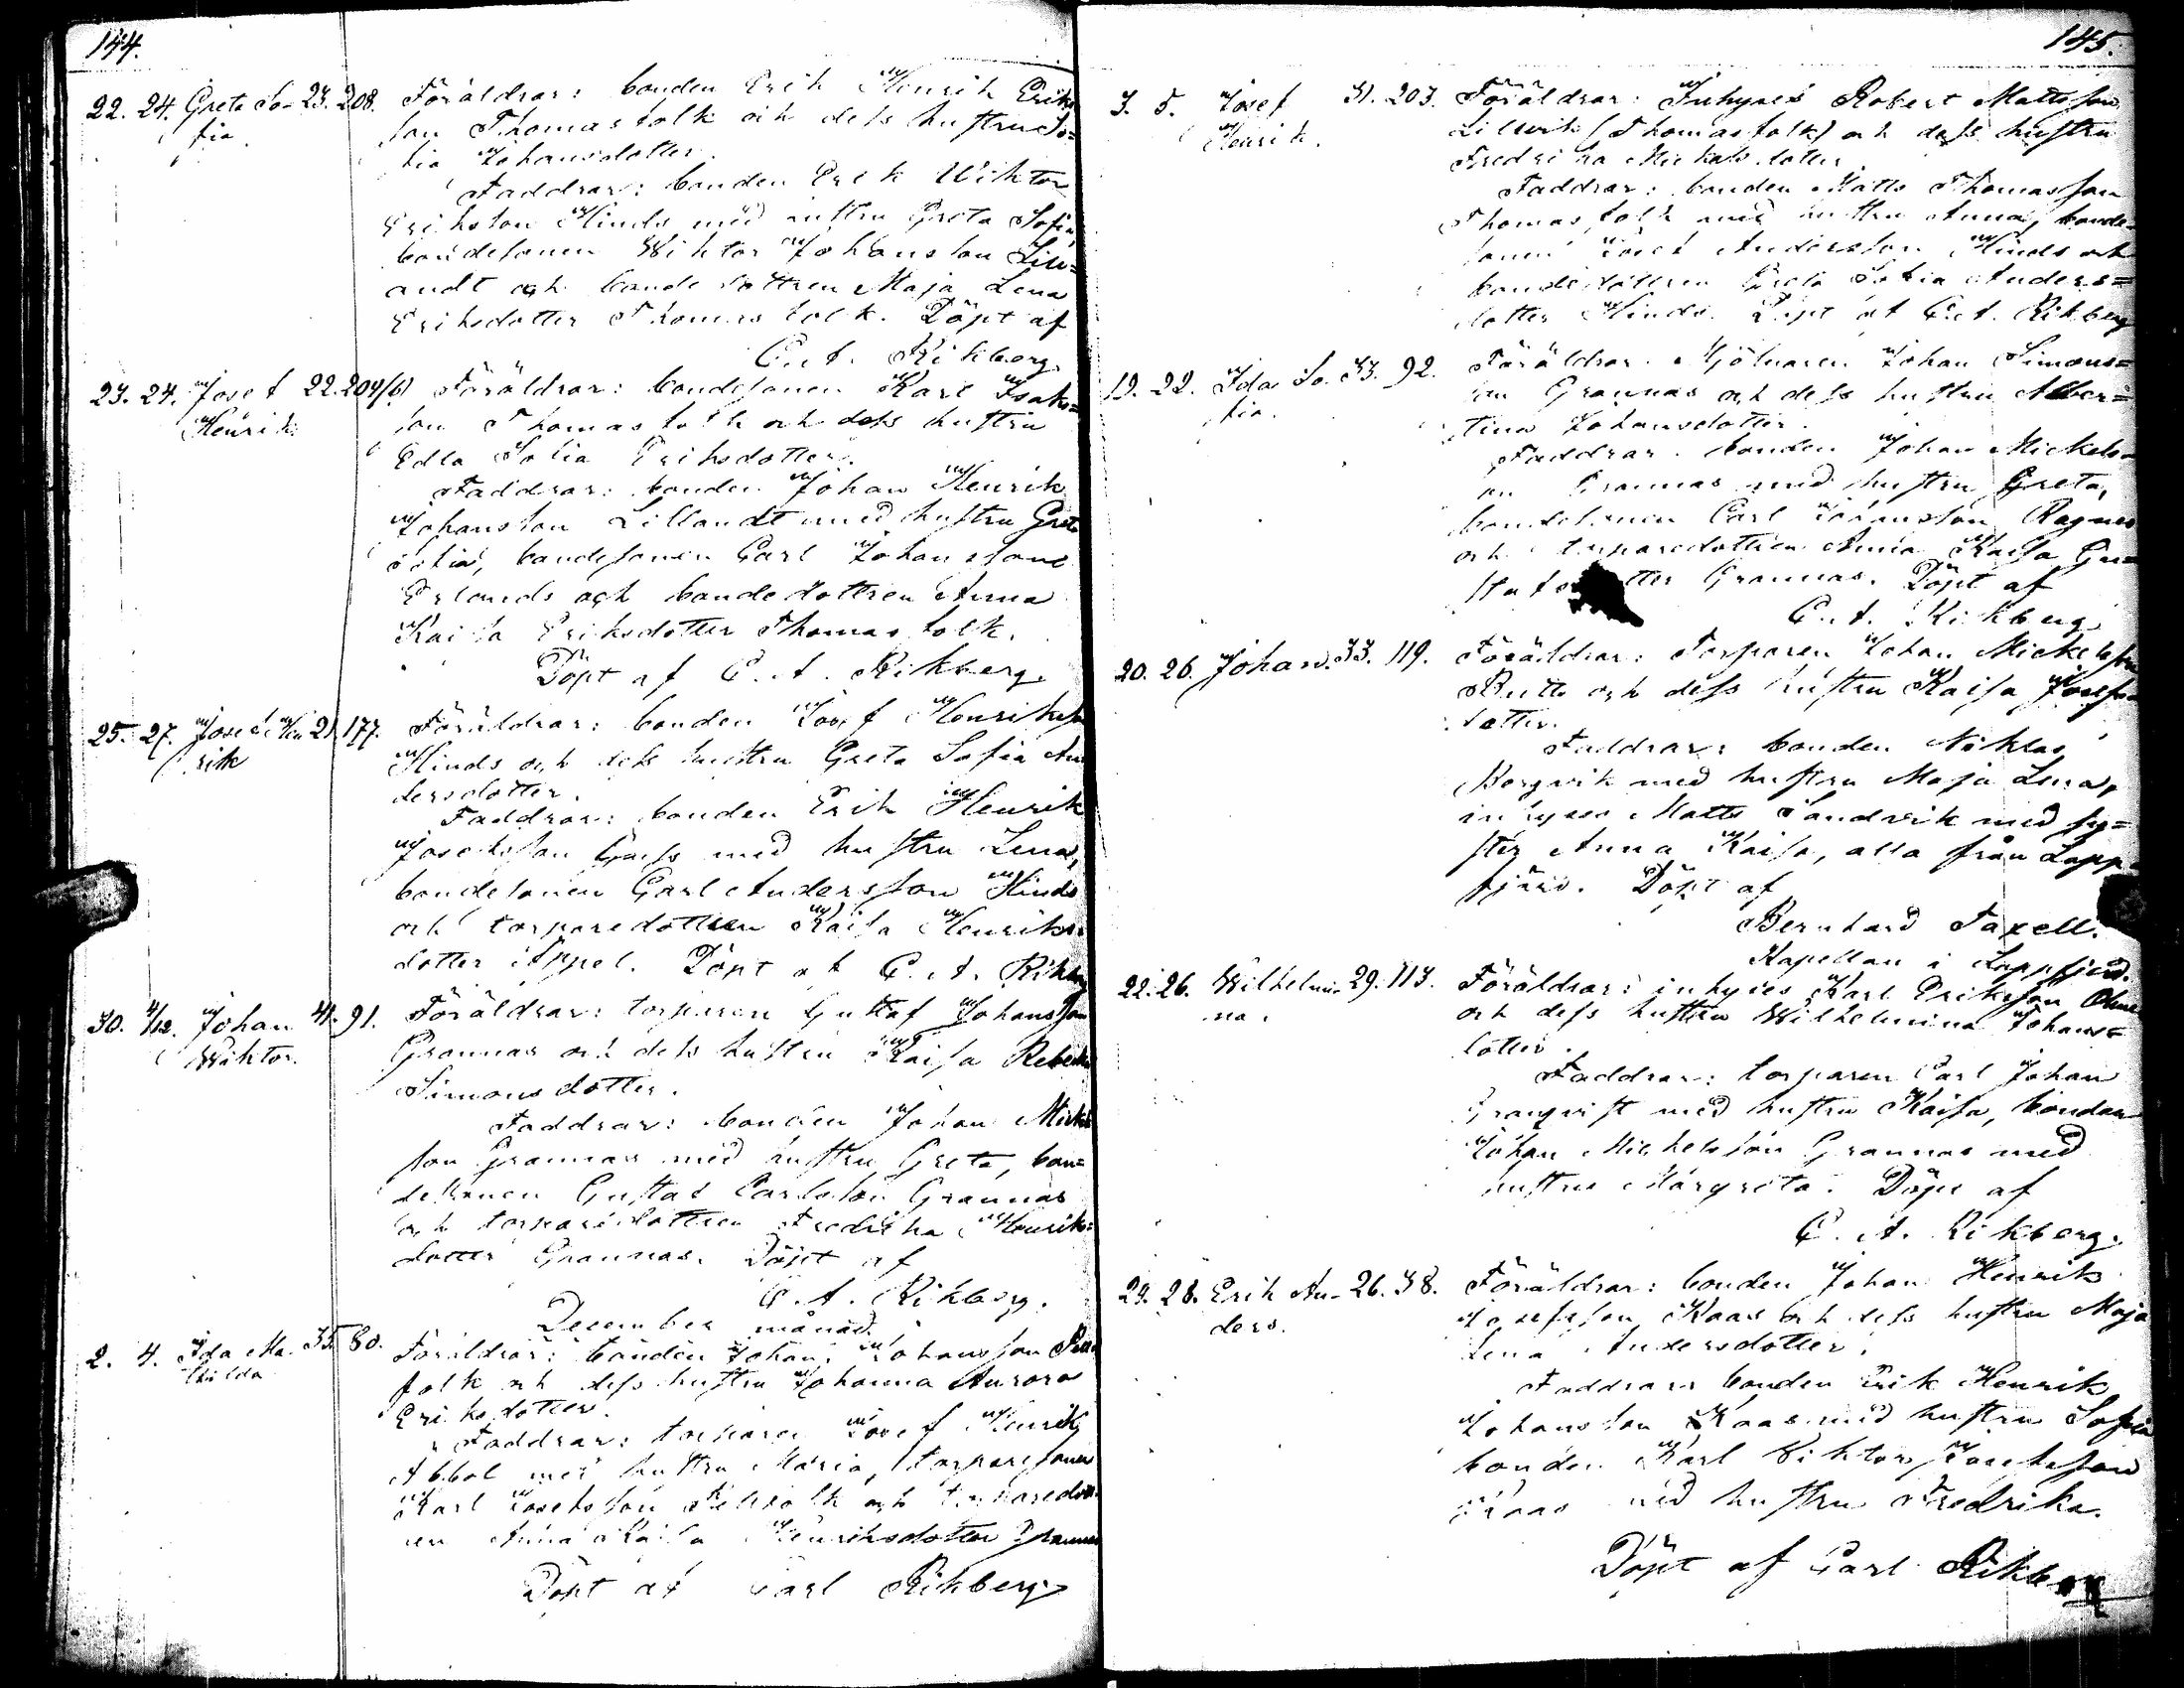 144.
22. 24. Greta So- 23. 208. Föräldrar: bonden Erik Henrik Eriks
fia son Thomasfolk och dess hustru So=
fia Johansdotter.
Faddrar: bonden Erik Wiktor
Eriksson Hinds med hustru Greta Sofia,
bondesonen Wiktor Johansson Lill=
andt och bondedottren Maja Lena
Eriksdotter Thomasfolk. Döpt af
C. A. Rikberg.
23. 24. Josef 22. 204(b) Föräldrar: bondesonen Karl Isaks=
Henrik son Thomasfolk och dess hustru
Edla Sofia Eriksdotter.
Faddrar: bonden Johan Henrik
Johansson Lillandt med hustru Greta
Sofia, bondesonen Carl Johansson
Erlands och bondedottren Anna
Kaisa Eriksdotter Thomasfolk.
Döpt af C. A. Rikberg.
25. 27. Josef Hen 21. 177. Föräldrar: bonden Josef Henriksson
rik Hinds och dess hustru Greta Sofia An
dersdotter.
Faddrar: bonden Erik Henrik
Josefsson med hustru Lena,
bondesonen Carl Andersson Hinds
och torparedottren Kaisa Henriks
dotter Appel. Döpt af C. A. Rikberg
30. 4/12. Johan 41. 91. Föräldrar: torparen Gustaf Johansson
Wiktor. Grannas och dess hustru Kaisa Rebecka
Simonsdotter.
Faddrar: bonden Johan Mickels
son Grannas med hustru Greta, bon=
desonen Gustaf Carlsson Grannas
och torparedottren Fredrika Henriks=
dotter Grannas. Döpt af
C. A. Rikberg.
December månad.
2. 4. Ida Ma- 35. 80. Föräldrar: bonden Johan Johansson
thilda folk och dess hustru Johanna Aurora
Eriksdotter.
Faddrar: torparen Josef Henrik
Abbol med hustru Maria, torparesonen
Karl Josefsson och torparedott
ren Anna Kaisa Henriksdotter Grannas
Döpt af Carl Rikberg
145.
3. 5. Josef 31. 203. Föräldrar: Inhyses Robert Mattsson
Henrik. Lillvik (Thomasfolk) och dess hustru
Fredrika Mickelsdotter.
Faddrar: bonden Matts Thomasson
Thomasfolk med hustru Anna, bonde-
sonen Josef Andersson Hinds och
bondedottren Greta Sofia Anders=
dotter Hinds. Döpt af C. A. Rikberg
19. 22. Ida So- 33. 92. Föräldrar: Mjölnaren Johan Simons=
fia. son Grannas och dess hustru Alber=
tina Johansdotter.
Faddrar: bonden Johan Mickels
son Grannas med hustru Greta,
bondesonen Carl Johansson Ragnas
och torparedottren Anna Kaisa Gu=
stafsdotter Grannas. Döpt af
C. A. Rikberg
20. 26. Johan. 33. 119. Föräldrar: Torparen Johan Mickelsson
Butts och dess hustru Kaisa Josefs
dotter.
Faddrar: bonden Niklas
Bergvik med hustru Maja Lena,
inhyses Matts Sandvik med sy=
ster Anna Kaisa, alla från Lapp=
fjärd. Döpt af
Bernhard Taxell.
Kapellan i Lappfjärd.
22. 26. Wilhelmi- 29. 113. Föräldrar: inhyses Karl Eriksson
na. och dess hustru Wilhelmina Johans=
dotter.
Faddrar: torparen Carl Johan
Granqvist med hustru Kaisa, bonden
Johan Mickelsson Grannas med
hustru Margreta. Döpt af
C. A. Rikberg.
24. 28. Erik An- 26. 38. Föräldrar: bonden Johan Henrik
ders. Josefsson Kaas och dess hustru Maja
Lena Andersdotter.
Faddrar: bonden Erik Henrik
Johansson Kaas med hustru Sofia
bonden Karl Viktor Josefsson
Kaas med hustru Fredrika.
Döpt af Carl Rikberg